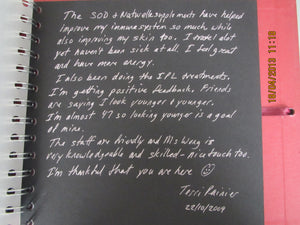 The SOD & Naturelle supplements have helped
improve my immune system so much while
also improving my skin too. I travel alot
yet haven't been sick at all. I feel great
and have more energy.
I also been doing the IPL treatments.
I'm getting positive feedback. Friends
are saying I look younger & younger.
I'm almost 47 so looking younger is a goal
of mine.
The staff are friendly and Ms Wang is
very knowledgeable and skilled - nice touch too.
I'm thankful that you are here
Terri Rainier
22/10/2009
16/04/2013 11:18